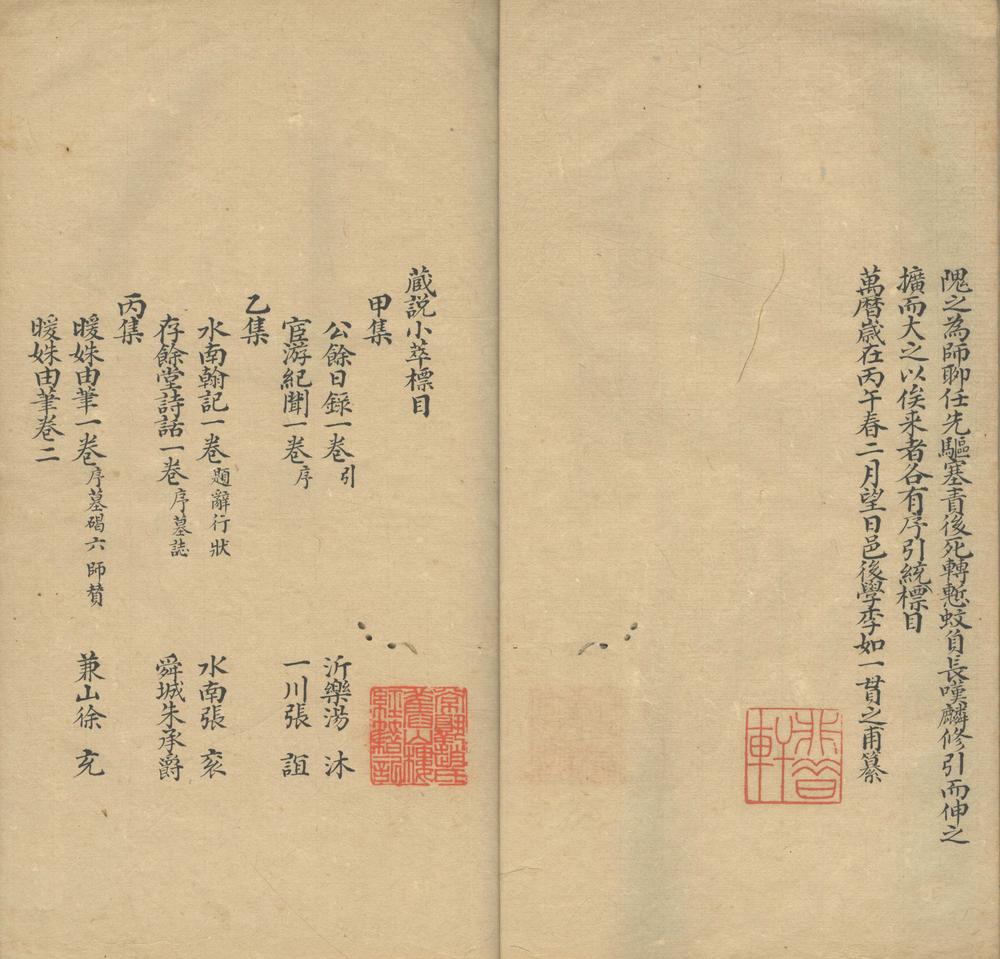 隗之為師聊任先驅塞責後死轉慙蚊負長嘆麟修引而伸之
擴而大之以俟来者各有序引統標目
萬曆歲在丙午春二月望日邑後學李如一貫之甫纂
藏説小萃標目
甲集
公餘日錄一卷 引 沂樂湯 沐
宦游紀聞一卷 序 一川張 誼
乙集
水南翰記一卷 題辭行狀 水南張 衮
存餘堂詩話一卷 序墓誌 舜城朱承爵
丙集
暖姝由筆一卷 序墓碣六師贊 兼山徐 充
暖姝由筆卷二